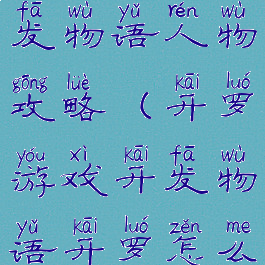 fā wù yǔ rén wù
发物语人物
gōng lüè kāi luó
攻略(开罗
yóu xì kāi fā wù
游戏开发物
yǔ kāi luó zěn me
语开罗怎么